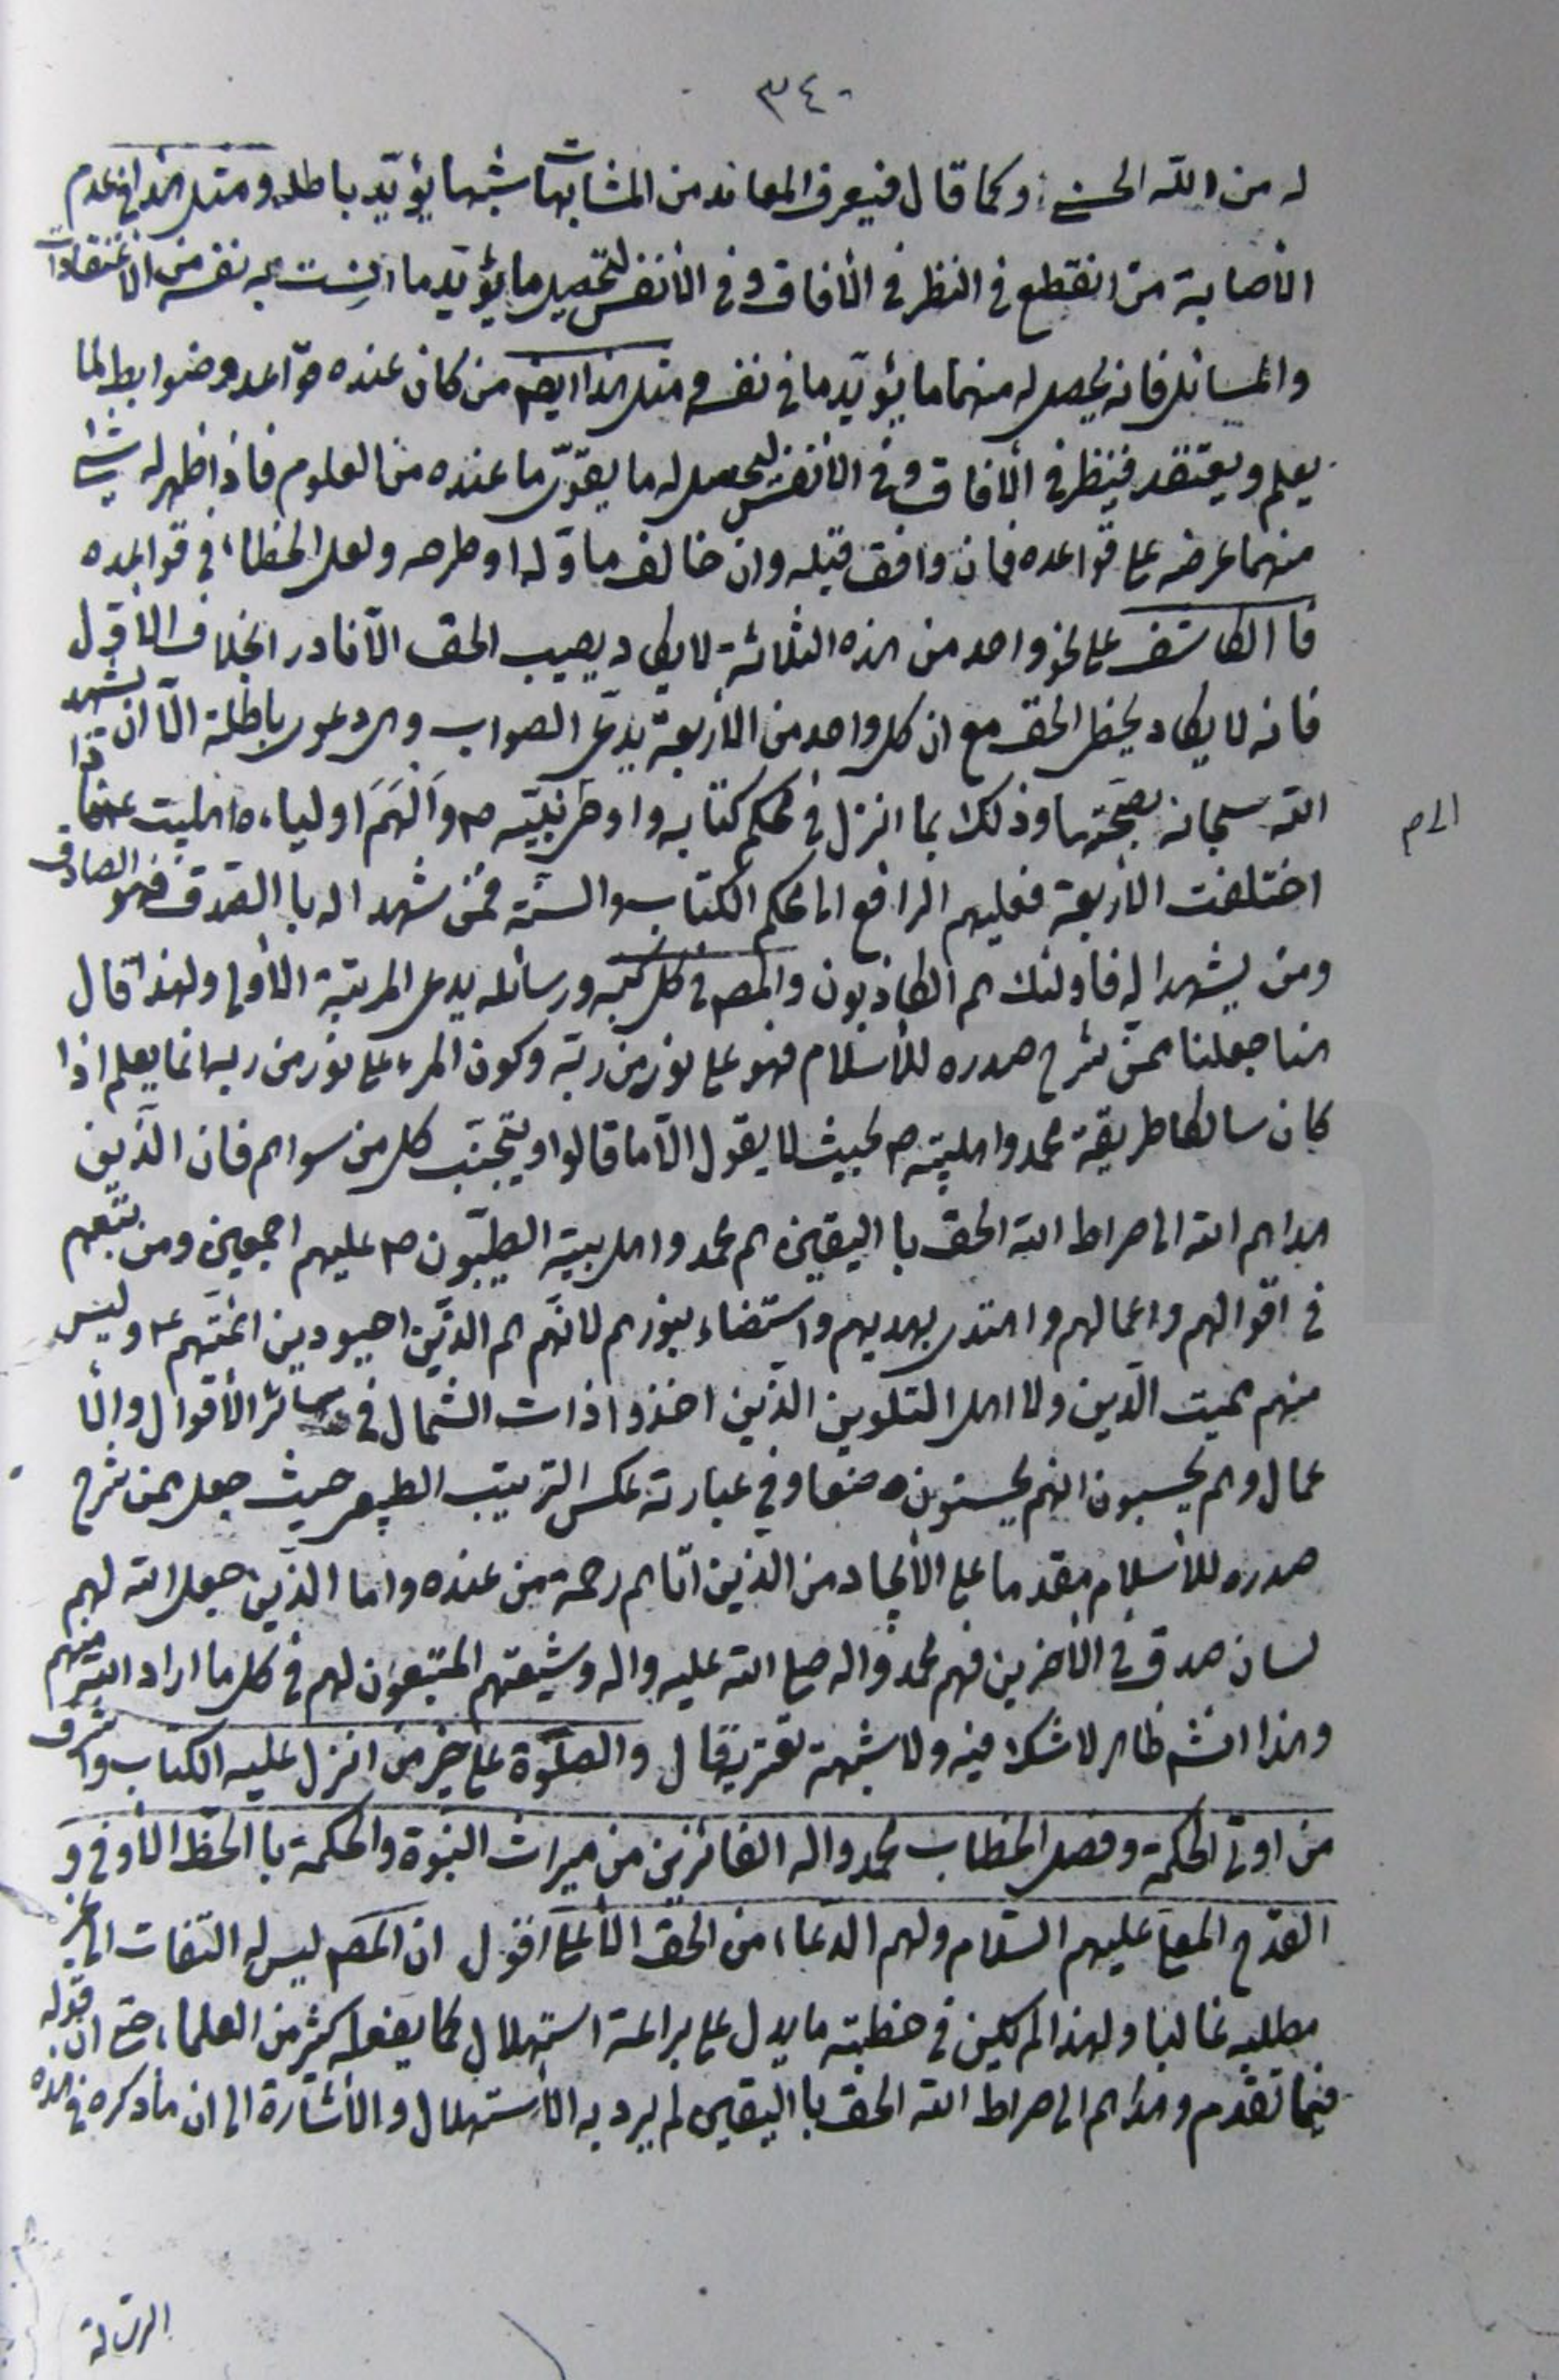 ٣٤٠
له من الله الحسنى وكما قال فيعرف المعاند من المتشابهات شبها يؤيّد باطله ومثل هذا في عدم
الأصابة من انقطع في النظر في الأفاق وفي الأنفس لتحصيل ما يؤيّد ما انست به نفسه من الاعتقادات
والمسائل فانه يحصل له منهما ما يؤيّد ما في نفسه ومثل هذا ايضم من كان عنده قواعد وضوابط لما
يعلم ويعتقد فينظر في الأفاق وفي الأنفس ليحصل له ما يقوّى ما عنده من العلوم فاذا ظهر له شئ
منهما عرضه على قواعده فان وافق قبله وان خالف ما اوّله او طرحه ولعل الخطاء في قواعده
فا الكاشف على نحو واحد من هذه الثلاثة لا يكاد يصيب الحق الّا نادر ابخلاف الأوّل
فانه لا يكاد يخطى الحق مع ان كل واحد من الأربعة يدعى الصواب والدعوى باطلة الّا ان يشهد
الله سبحانه بصحّتها وذلك بما انزل في محكم كتابه واوحى نبيّه ص والهم اولياءه اهلبيت ع فاذا
الى م
اختلفت الأربعة فعليهم الرافع الى محكم الكتاب والسنّة فمن شهدا له با الصّدق فهو الصادق
ومن لم يشهدا له فاولئك هم الكاذبون والمصم في كل كتبه ورسائله يدعى المرتبة الأولى ولهذا قال
هنا جعلنا ممن شرح صدره للأسلام فهو على نور من ربّه وكون المرء على نور من ربه انما يعلم اذا
كان سالكا طريقة محمد واهلبيته ص بحيث لا يقول الّا ما قالوا ويتجنّب كل من سواهم فان الّذين
هداهم الله الى صراط الله الحق با اليقين هم محمد واهل بيته الطيّبون ص عليهم اجمعين ومن تبعهم
في اقوالهم واعمالهم واهتدى بهديهم واستضاء بنورهم لانّهم هم الذّين احيوا دين ائمتهم ع وليس
منهم مميت الّدين ولا اهل التلوين الذّين اخذوا ذات الشمال في سائر الأقوال والأ
عمال وهم يحسبون انهم يحسنون صنعا وفي عبارته عكس الترتيب الطبيعى حيث جعل ممن شرح
صدره للأسلام مقدما على الأيجاد من الذّين اتاهم رحمة من عنده واما الذّين جعل الله لهم
لسان صدق في الأخرين فهم محمد واله صلى الله عليه واله وشيعتهم المتّبعون لهم في كل ما اراد الله منهم
وهذا انشم ظاهر لا شك فيه ولا شبهة تعتريه قال والصلوة على خير من انزل عليه الكتاب واشرف
من اوتى الحكمة وفصل الخطاب محمد واله الفائزين من ميراث النبوّة والحكمة با الحظّ الأوفى و
القدح المعلى عليهم السّلام ولهم الدعاء من الحق الأعلى اقول ان المصم ليس له التفات الى غير
مطلبه غالبا ولهذا لم يكن في خطبته ما يدل على براعة استهلال كما يفعله كثير من العلماء حتى ان قوله
فيما تقدم وهداهم الى صراط الله الحق با اليقين لم يرد به الأستهلال والأشارة الى ان ما ذكره في هذه
الرسالة